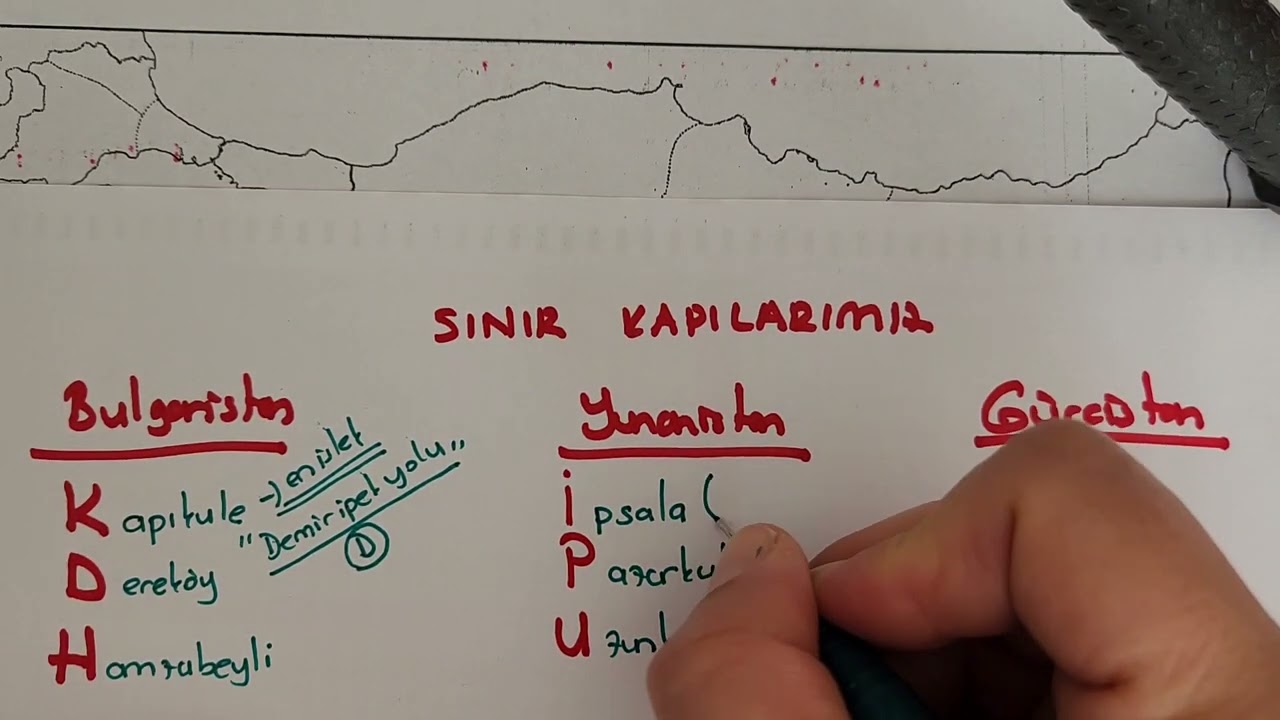 SINIR KAPILARIMIZ
Bulgaristan
Kapıkule → en işlek
"Demir ipek yolu"
D
Dereköy
Hamzabeyli
Yunanistan
İpsala (
Gürcistan